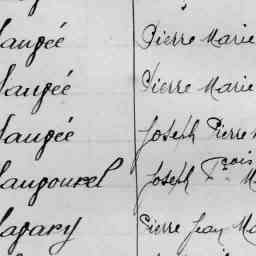 augée Pierre Marie
augée Pierre Marie
augée Joseph Pierre
augourel Joseph Fçois M
agary Pierre Jean Ma